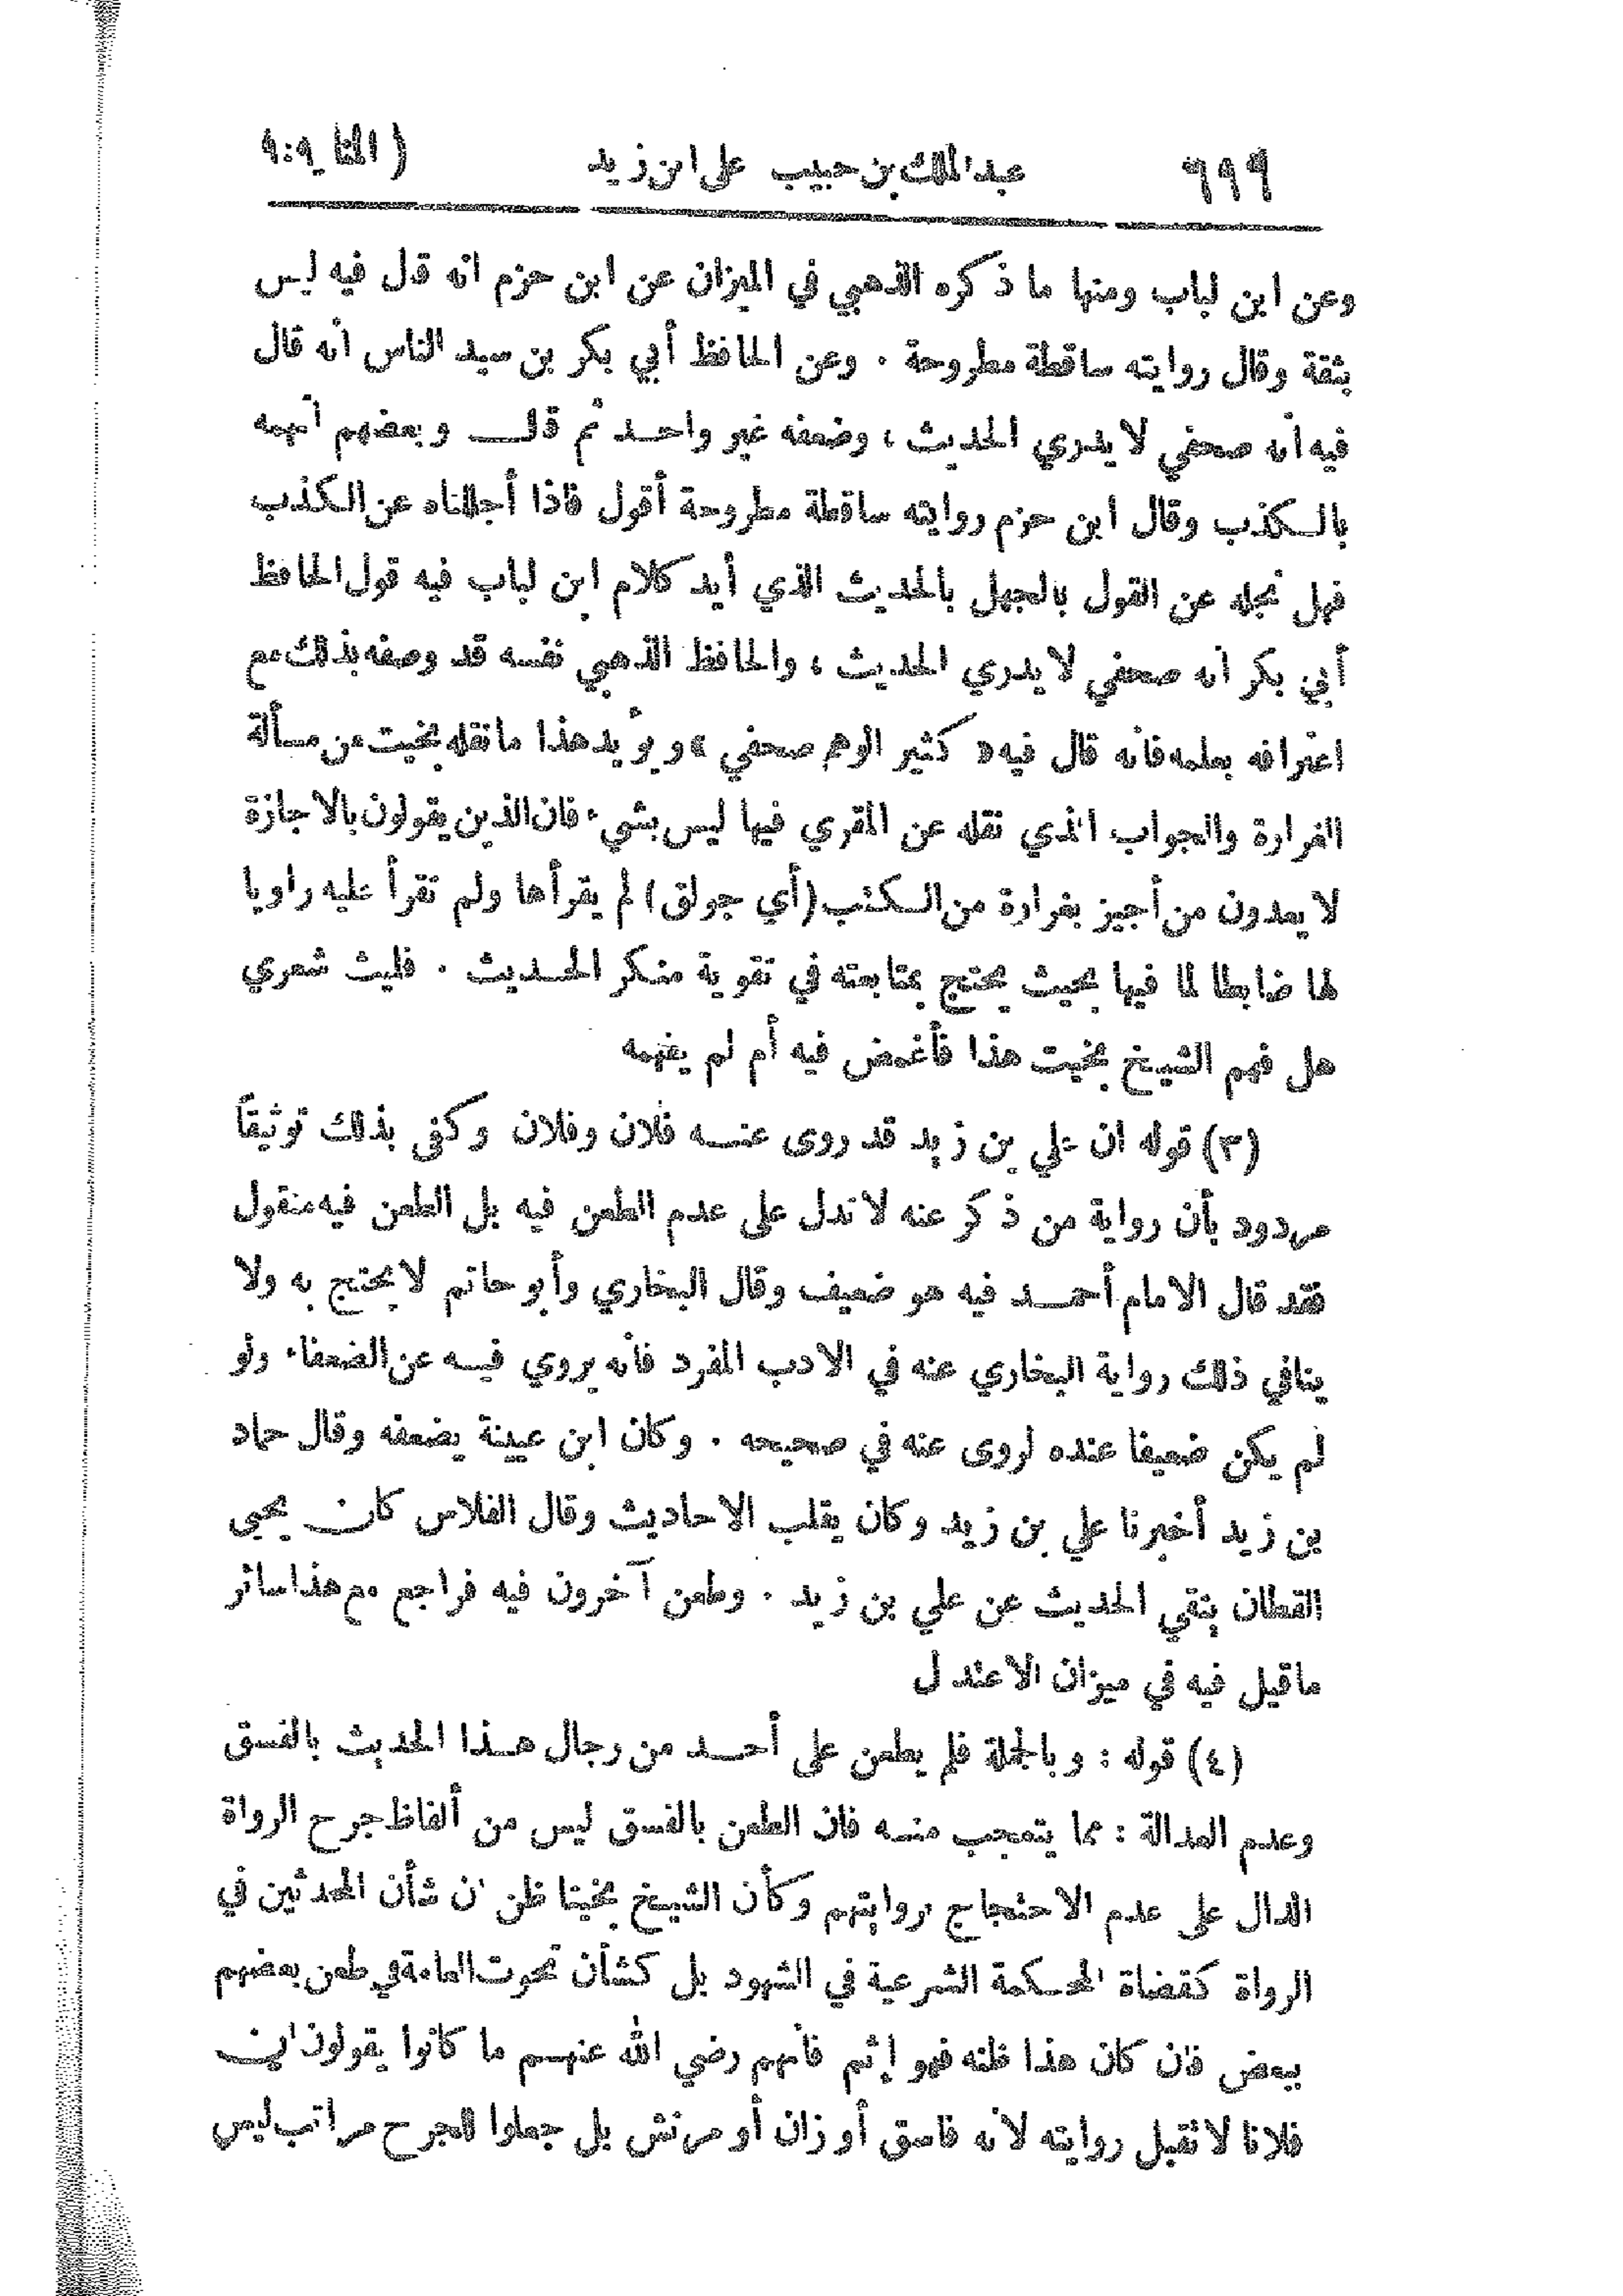 ٦٩٩ عبد الملك بن حبيب على ابن زيد (المنار ٩:٩
وعن ابن لباب ومنها ما ذكره الذهبي في الميزان عن ابن حزم انه قال فيه ليس
بثقة وقال روايته ساقطة مطروحة . وعن الحافظ أبي بكر بن سيد الناس أنه قال
فيه أنه صحفي لا يدري الحديث ، وضعفه غير واحد ثم قال وبعضهم اتهمه
بالكذب وقال ابن حزم روايته ساقطة مطروحة أقول فاذا أجللناه عن الكذب
فهل نجله عن القول بالجهل بالحديث الذي أيد كلام ابن لباب فيه قول الحافظ
أبي بكر أنه صحفي لا يدري الحديث ، والحافظ الذهبي نفسه قد وصفه بذلك مع
اعترافه بعلمه فانه قال فيه « كثير الوهم صحفي » ويؤيد هذا ما نقله بخيت من مسألة
الغرارة والجواب الذي نقله عن المقري فيها ليس بشيء فان الذين يقولون بالاجازة
لا يعدون من أجيز بغرارة من الكتب (أي جولق) لم يقرأها ولم تقرأ عليه راويا
لها ضابطا لما فيها بحيث يحتج بمتابعته في تقوية منكر الحديث . فليت شعري
هل فهم الشيخ بخيت هذا فأغمض فيه أم لم يفهمه
(٣) قوله ان علي بن زيد قد روى عنه فلان وفلان وكفى بذلك توثيقاً
مردود بأن رواية من ذكر عنه لا تدل على عدم الطعن فيه بل الطعن فيه منقول
فقد قال الامام أحمد فيه هو ضعيف وقال البخاري وأبو حاتم لا يحتج به ولا
ينافي ذلك رواية البخاري عنه في الادب المفرد فانه يروي فيه عن الضعفاء ولو
لم يكن ضعيفا عنده لروى عنه في صحيحه . وكان ابن عيينة يضعفه وقال حماد
بن زيد أخبرنا علي بن زيد وكان يقلب الاحاديث وقال الفلاس كان يحيى
القطان يتقي الحديث عن علي بن زيد . وطعن آخرون فيه فراجع مع هذا سائر
ما قيل فيه في ميزان الاعتدل
(٤) قوله : وبالجملة فلم يطعن على أحد من رجال هذا الحديث بالفسق
وعدم العدالة : مما يتعجب منه فان الطعن بالفسق ليس من ألفاظ جرح الرواة
الدال على عدم الاحتجاج بروايتهم وكأن الشيخ بخيتا ظن ان شأن المحدثين في
الرواة كقضاة المحكمة الشرعية في الشهود بل كشأن تحوت العامة في طعن بعضهم
ببعض فان كان هذا ظنه فهو إثم فانهم رضي الله عنهم ما كانوا يقولون ان
فلانا لا تقبل روايته لانه فاسق أو زان أو مرتش بل جعلوا للجرح مراتب ليس